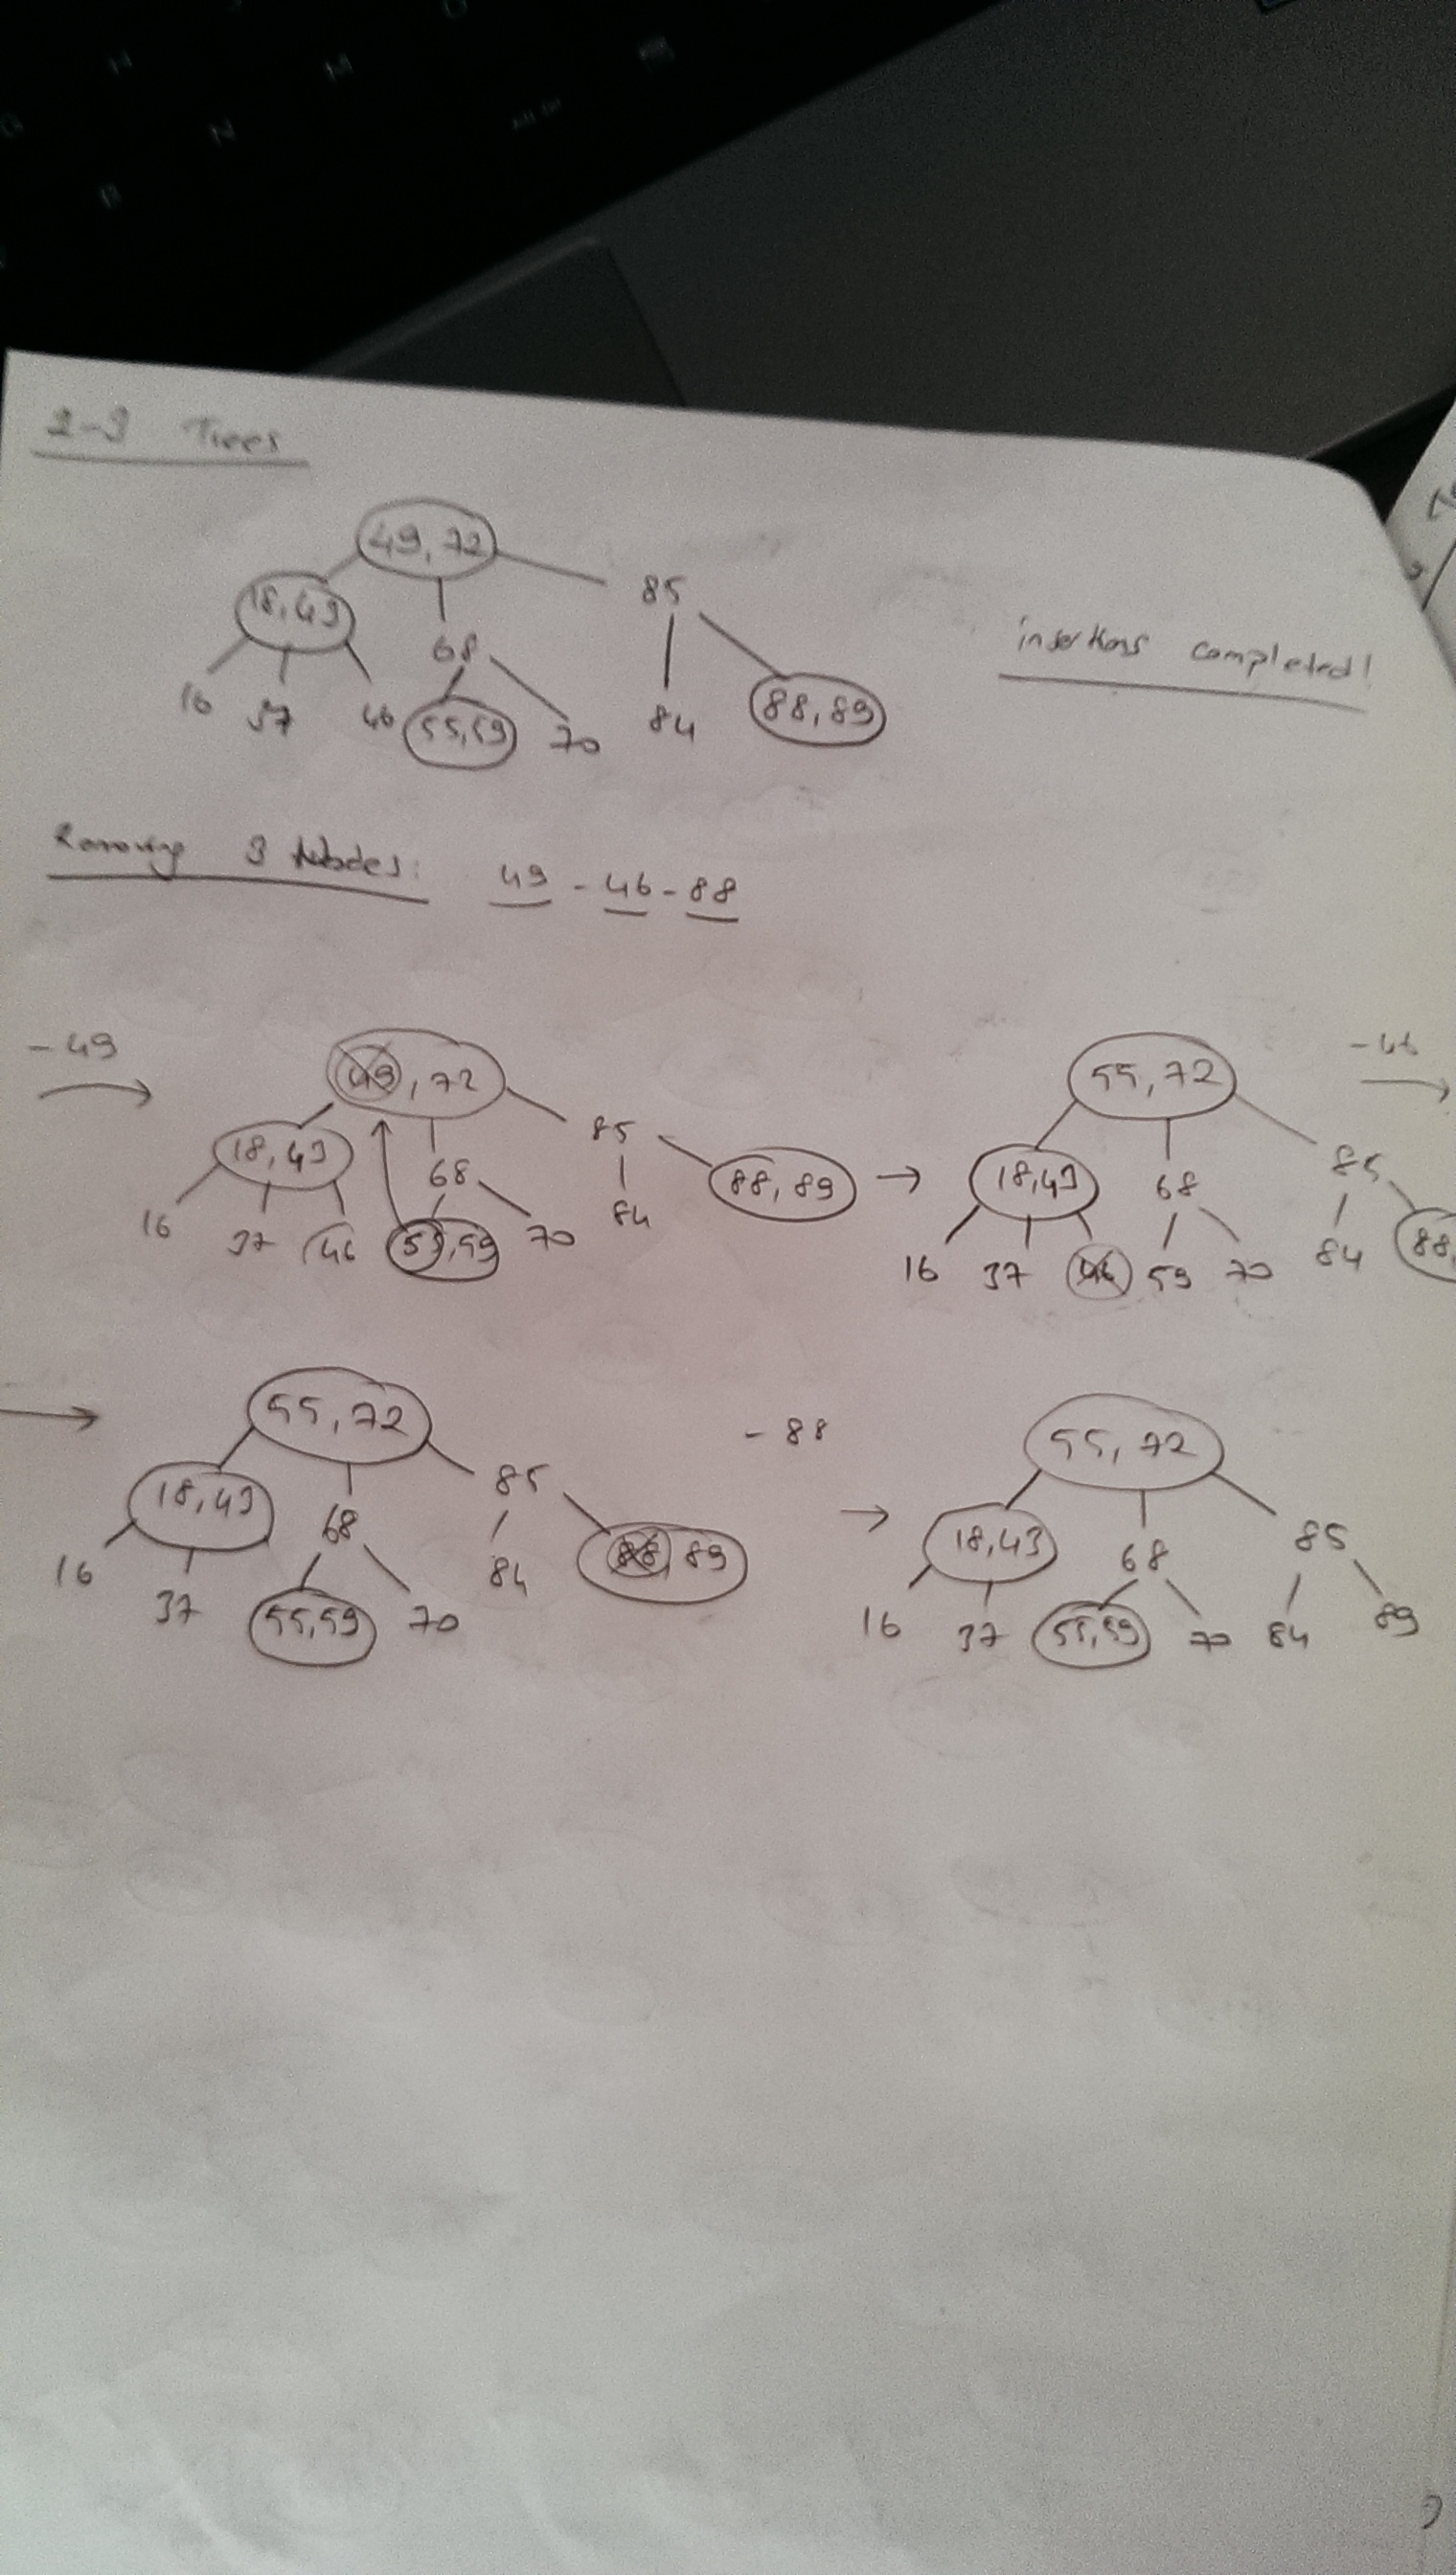 2-3 Trees
49, 72
18, 43
85
68
16 37 46 55, 59 70 84 88, 89
insertions completed!
Removing 3 Nodes: 49 - 46 - 88
- 49
49, 72
18, 43
68
85
88, 89
16 37 46 55, 59 70 84
55, 72
- 46
18, 43
68
85
16 37 46 59 70 84 88,
55, 72
18, 43
68
85
16 37 55, 59 70 84 88, 89
- 88
55, 72
18, 43
68
85
16 37 55, 59 70 84 89